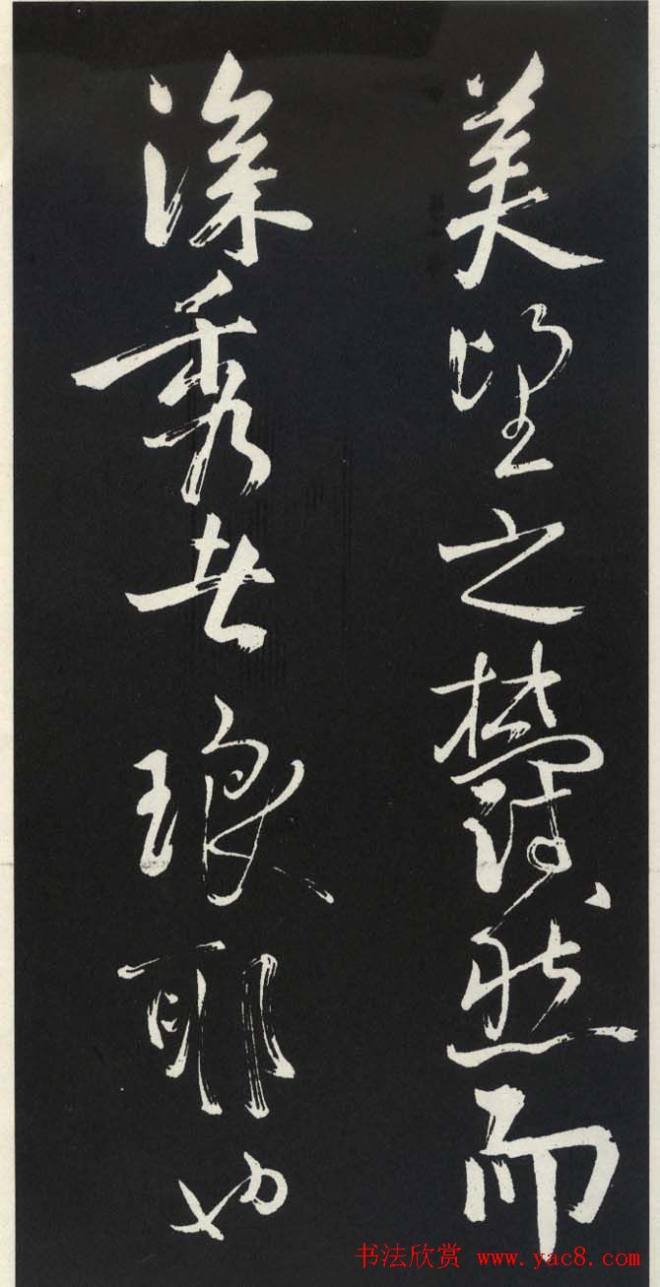 美望之蔚然而
深秀者琅耶也
书法欣赏 www.yac8.com